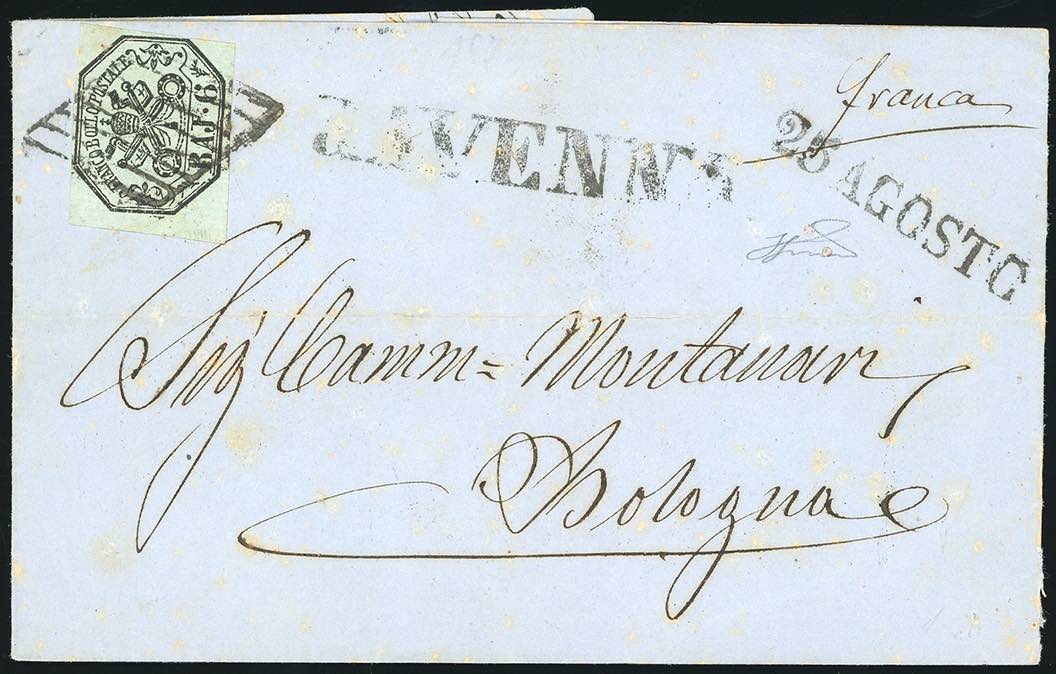 FRANCO BOLLO POSTALE
BAJ: 6
RAVENNA
franca
25 AGOSTO
Sig Camm= Montanari
Bologna